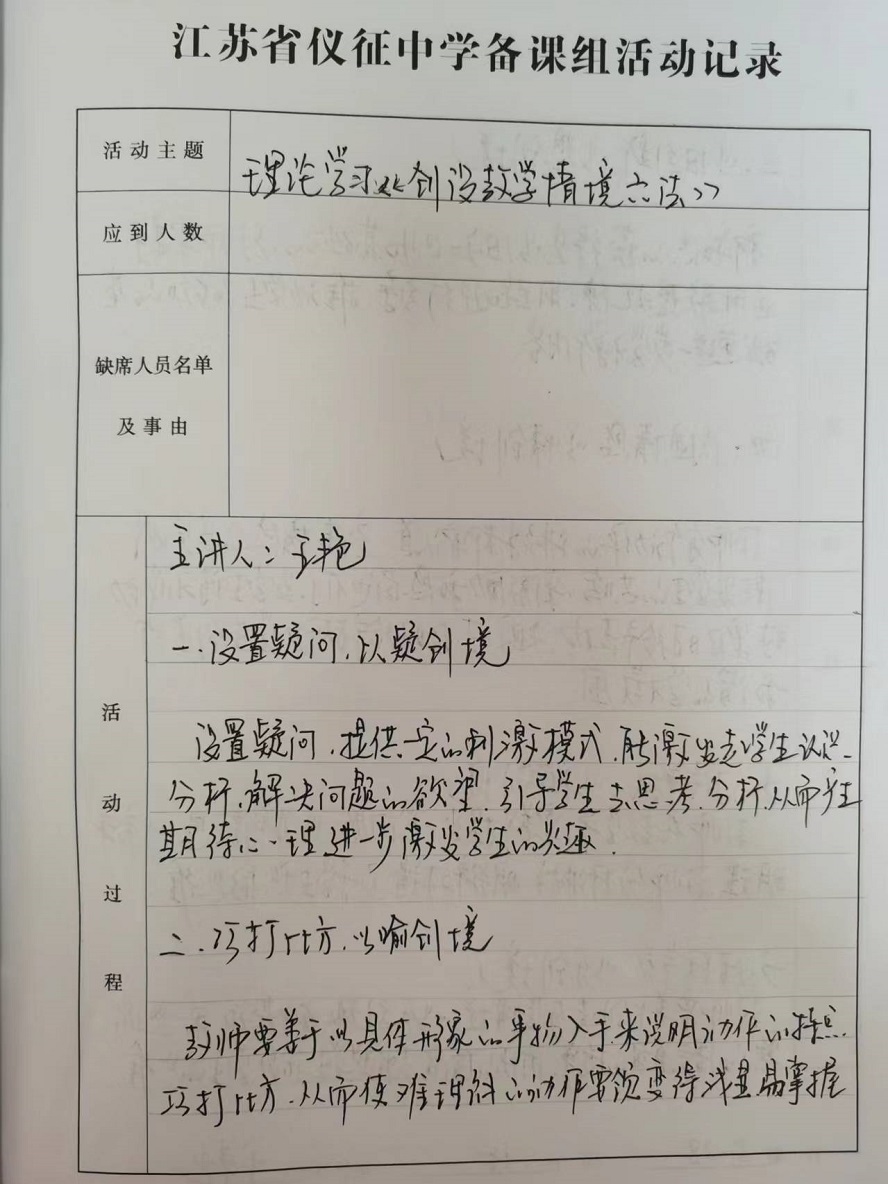 江苏省仪征中学备课组活动记录
活动主题
理论学习《创设教学情境六法》
应到人数
缺席人员名单
及事由
活动过程
主讲人：王艳
一、设置疑问，以疑创境
设置疑问，提供一定的刺激模式，能激发起学生认识、
分析、解决问题的欲望，引导学生去思考、分析，从而产生
期待心理进一步激发学生的兴趣．
二、巧打比方，以喻创境
教师要善于以具体形象的事物入手来说明动作的特点
巧打比方，从而使难理解的动作要领变得浅显易掌握